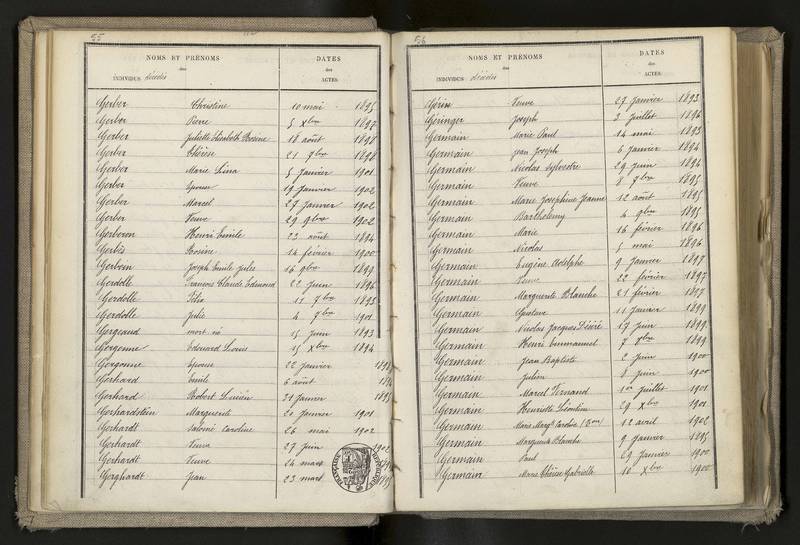 55
NOMS ET PRÉNOMS
des
INDIVIDUS décédés
DATES
des
ACTES
Gerber Christine 10 mai 1895
Gerber Pierre 5 Xbre 1897
Gerber Juliette Elisabeth Rosine 18 août 1898
Gerber Thérèse 21 7bre 1898
Gerber Marie Lina 5 Janvier 1901
Gerber Epouse 19 Janvier 1902
Gerber Marcel 27 Janvier 1902
Gerber Veuve 29 9bre 1902
Gerberon Henri Emile 23 août 1894
Gerbès Rosine 14 février 1900
Gerboin Joseph Emile Jules 16 9bre 1899
Gerdolle François Claude Edmond 22 Juin 1896
Gerdolle Félix 11 7bre 1895
Gerdolle Julie 4 7bre 1901
Gergeaud mort né 15 Juin 1893
Gergonne Edouard Louis 15 Xbre 1894
Gergonne Epouse 22 Janvier
Gerhard Emile 6 août
Gerhard Robert Lucien 21 Janvier 1895
Gerhardstein Marguerite 20 Janvier 1901
Gerhardt Salomé Caroline 26 mai 1902
Gerhardt Veuve 27 Juin 1902
Gerhardt Veuve 24 mars
Gerghardt Jean 23 mars
56
NOMS ET PRÉNOMS
des
INDIVIDUS décédés
DATES
des
ACTES
Gérin Veuve 27 Janvier 1893
Géringer Joseph 3 Juillet 1896
Germain Marie Paul 14 mai 1893
Germain Jean Joseph 6 Janvier 1894
Germain Nicolas Sylvestre 29 Juin 1894
Germain Veuve 8 7bre 1895
Germain Marie Joséphine Jeanne 12 août 1895
Germain Barthélemy 4 9bre 1895
Germain Marie 16 février 1896
Germain Nicolas 5 mai 1896
Germain Eugène Adolphe 9 Janvier 1897
Germain Veuve 22 février 1897
Germain Marguerite Blanche 21 février 1897
Germain Gustave 11 Janvier 1899
Germain Nicolas Jacques Désiré 17 Juin 1899
Germain Henri Emmanuel 7 7bre 1899
Germain Jean Baptiste 2 Juin 1900
Germain Julien 8 Juin 1900
Germain Marcel Fernand 1er Juillet 1901
Germain Henriette Léontine 29 Xbre 1901
Germain Marie Margte Caroline 12 avril 1902
Germain Marguerite Blanche 9 Janvier 1895
Germain Paul 29 Janvier 1900
Germain Marie Thérèse Gabrielle 10 Xbre 1900